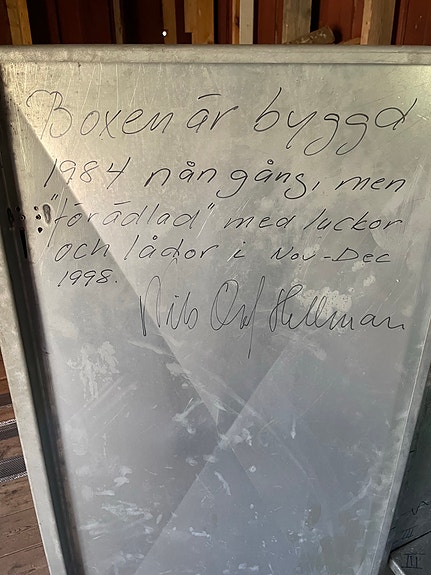 Boxen är byggd
1984 nån gång, men
"förädlad" med luckor
och lådor i Nov-Dec
1998.
Nils Olof Hellman
III